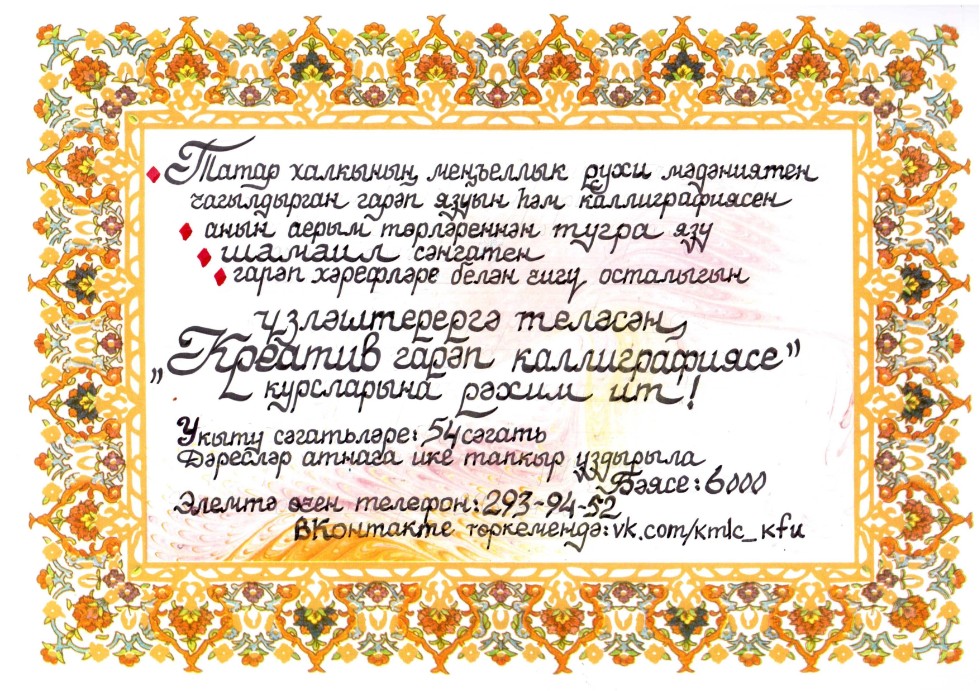 Татар халкының меңъеллык рухи мәдәниятен
чагылдырган гарәп язуын һәм каллиграфиясен
анын аерым төрләреннән тугра язу
шамаил сәнгатен
гарәп хәрефләре белән чигү осталыгын
үзләштерергә теләсәң,
„Креатив гарәп каллиграфиясе”
курсларына рәхим ит!
Укыту сәгатьләре: 54 сәгать
Дәресләр атнага ике тапкыр уздырыла
Бәясе: 6000
Элемтә өчен телефон: 293-94-52
ВКонтакте төркемендә: vk.com/kmlc_kfu